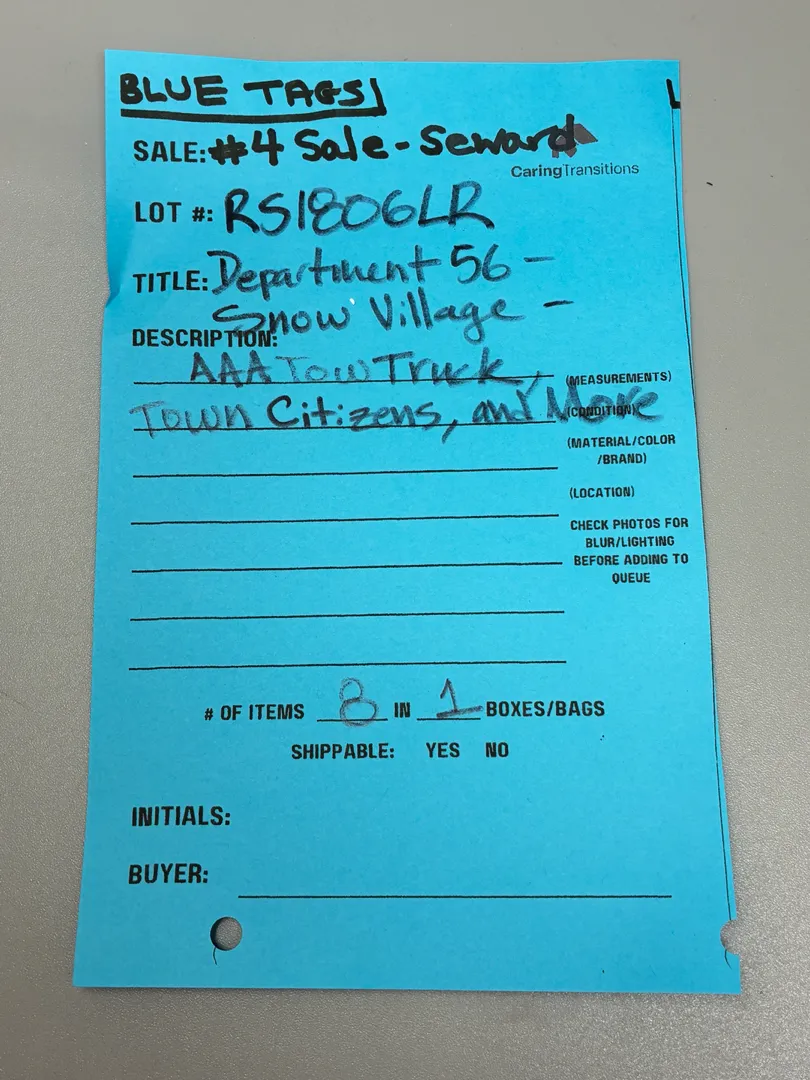 BLUE TAGS
SALE: #4 Sale - Seward
CaringTransitions
LOT #: RS1806LR
TITLE: Department 56 -
Snow Village -
DESCRIPTION:
AAA Tow Truck,
(MEASUREMENTS)
Town Citizens, and More
(CONDITION)
(MATERIAL/COLOR
/BRAND)
(LOCATION)
CHECK PHOTOS FOR
BLUR/LIGHTING
BEFORE ADDING TO
QUEUE
# OF ITEMS 8 IN 1 BOXES/BAGS
SHIPPABLE: YES NO
INITIALS:
BUYER: